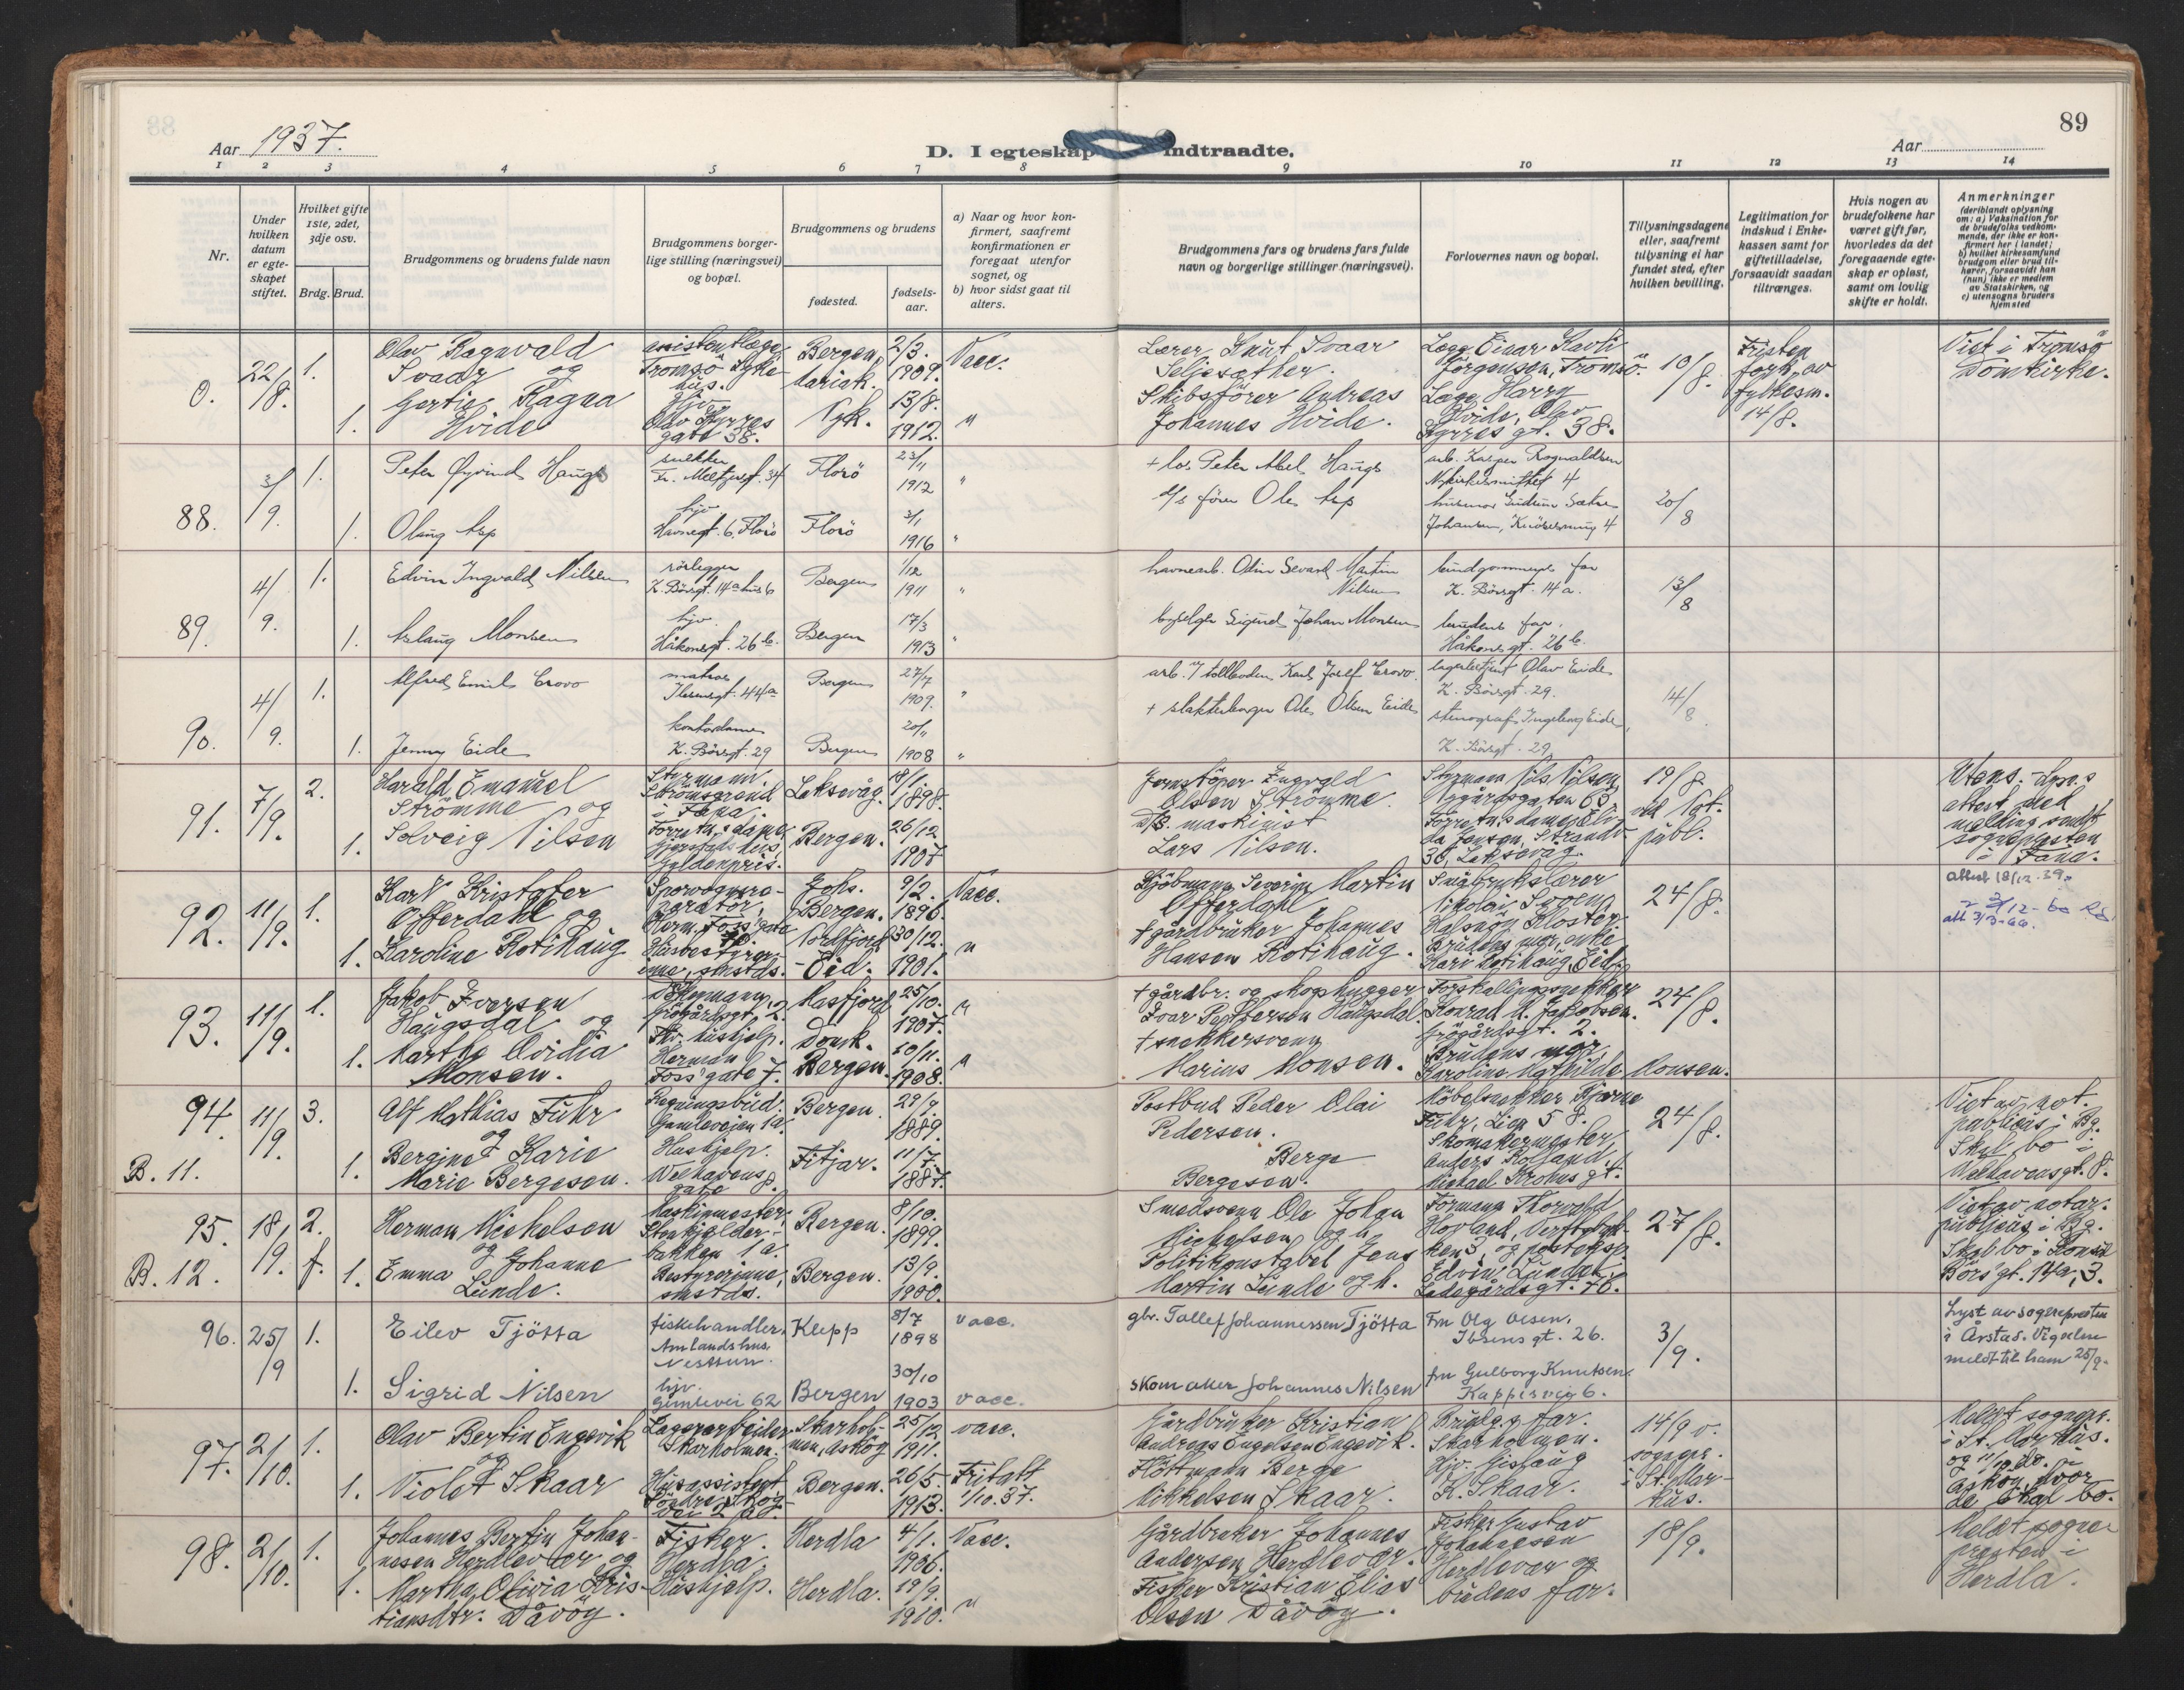 Aar 1937.
D. I egteskap indtraadte.
Aar
89
1 2 3 4 5 6 7 8 9 10 11 12 13 14
Nr.
Under hvilken datum er egteskapet stiftet.
Hvilket gifte 1ste, 2det, 3dje osv.
Brdg. Brud.
Brudgommens og brudens fulde navn
Brudgommens borgerlige stilling (næringsvei) og bopæl.
Brudgommens og brudens
fødested.
fødselsaar.
a) Naar og hvor konfirmert, saafremt konfirmationen er foregaat utenfor sognet, og
b) hvor sidst gaat til alters.
Brudgommens fars og brudens fars fulde navn og borgerlige stillinger (næringsvei).
Forlovernes navn og bopæl.
Tillysningsdagene eller, saafremt tillysning ei har fundet sted, efter hvilken bevilling.
Legitimation for indskud i Enkekassen samt for giftetilladelse, forsaavidt saadan tiltrænges.
Hvis nogen av brudefolkene har været gift før, hvorledes da det foregaaende egteskap er opløst, samt om lovlig skifte er holdt.
Anmerkninger (deriblandt oplysning om: a) Vaksination for de brudefolks vedkommende, der ikke er konfirmert her i landet; b) hvilket kirkesamfund brudgom eller brud tilhører, forsaavidt han (hun) ikke er medlem av Statskirken, og c) utensogns bruders hjemsted
0. 22/8. 1. Olav Ragnvald Svaar og
assistentlæge Tromsö Syke-hus. Bergen, Mariak. 2/3. 1909. Vacc.
Lærer Knut Svaar Seljesæther.
Læge Einar Kavli Jörgensen, Tromsö. 10/8.
Fristen fork. av fylkesm. 14/8.
Viet i Tromsö Domkirke.
1. Gertie Ragna Hvide
Hjv. Olav Kyrres gate 38. Nyk. 13/8. 1912. "
Skibsförer Andreas Johannes Hvide.
Læge Harry Hvide, Olav Kyrres gt. 38.
88. 3/9. 1. Peter Øyvind Haugs
snekker Fr. Meltzersgt. 34 Florö 23/11 1912 "
+ los Peter Abel Haugs
arb. Kasper Rognaldsen Nykirkesmittet 4
20/8
1. Olaug Asp
hjv. Havnegt. 6, Florö Florö 3/1 1916 "
d/s förer Ole Asp
husmor Gudrun Sætre Johansen, Knösesmug 4
89. 4/9. 1. Edvin Ingvald Nilsen
rörlegger K. Börsgt. 14a hus 6 Bergen 1/12 1911 "
havnearb. Odin Sevard Martin Nilsen
brudgommens far K. Börsgt. 14a.
13/8
1. Aslaug Monsen
hjv. Håkonsgt. 26 b. Bergen 17/3 1913 "
Sigurd Johan Monsen
brudens far. Håkonsgt. 26 b.
90. 4/9. 1. Alfred Emil Crovo
matros Ibsensgt. 44a Bergen 27/7 1909. "
arb. v/ tollboden Karl Josef Crovo.
lagerbetjent Olav Eide K. Börsgt. 29.
14/8.
1. Jenny Eide
kontordame K. Börsgt. 29 Bergen 20/11 1908 "
+ slakterborger Ole Olsen Eide
stenograf Ingeborg Eide, K. Börsgt. 29
91. 7/9. 2. Harald Emanuel Strömme og
Styrmann. Strömsgrend i Fana. Laksevåg. 18/1. 1898.
Jernstöper Ingvald Olsen Strömme.
Styrmann Nils Nilsen, Nygårdsgaten 63,
19/8. ved Not. publ.
Utens. Lysn.s attest med melding sendt sognepresten i Fana.
1. Solveig Nilsen
Forretn.s dame Gyldenpris. Bergen. 26/12 1907
D/S. maskinist Lars Nilsen.
Forretn.s dame Jensen, Strandv. 30, Laksevåg.
92. 11/9. 1. Karl Kristofer Offerdahl og
Sporvognsreparatör, Herm. Foss' gate Johs. Bergen. 9/2. 1896. Vacc.
Kjöbmann Severin Martin Offerdahl
Småbrukslærer Nikolai Halsnöy Kloster
24/8.
attest 18/12-39.
att 3/3-66.
1. Karoline Rotihaug
Husbestyrerinne, smstds. Nordfjord - Eid. 30/12. 1901. "
+ gårdbruker Johannes Hansen Rotihaug.
Brudens mor, enke Kari Rotihaug, Eid.
93. 11/9. 1. Jakob Iversen Haugsdal og
Frögårdsgt. 2 Masfjord 25/10. 1907. "
+ gårdbr. og skogshugger Ivar Pedersen Haugsdal.
Forskallingssnekker Konrad M. Jakobsen. Frögårdsgt. 2.
24/8.
1. Marthe Ovidia Monsen.
Fhv. hushjelp. Herman Foss' gate 7. Domk. Bergen. 20/11. 1908. "
+ snekkersvenn Marius Monsen.
Brudens mor, Karoline Mathilde Monsen.
94. B. 11. 11/9. 3. Alf Mathias Fuhr og
Regningsbud. Gamleveien 1a. Bergen. 29/9 1889.
Postbud Peder Olai Pedersen.
Möbelsnekker Bjarne Fuhr, Lien 5 8.
24/8.
Viet av not. publicus i Bg. Skal bo i Welhavensgt. 8.
1. Bergine Karie Marie Bergesen.
Hushjelp. Welhavens gate 8. Fitjar. 11/7 1887.
Berge Bergesen.
Skomakermester, Anders Rolland, Michael Krohns gt.
95. B. 12. 18/9. 2. f. Herman Michelsen og
Maskinmester, Storhjelder-bakken 1a. Bergen. 8/10. 1899.
Smedsvenn Ole Johan Michelsen og h.
Formann Thorvald Hovland,
27/8.
Viet av notar. publicus i Bg. Skal bo i Konsul Börs' gt. 14a, 3.
1. Emma Johanne Lunde.
Bestyrerinne, smstds. Bergen. 13/9. 1900.
Politikonstabel Jens Martin Lunde og h.
Edvin Lunde, Ladegårdsgt. 40.
96. 25/9 1. Eilev Tjötta
fiskehandler, Amlandshus, Nesttun. Klepp 8/7 1898 vacc.
gbr. Tollef Johannessen Tjötta
Fru Olg Olsen, Ibsens gt. 26.
3/9.
Lyst av sognepresten i Årstad. Vigselen meldt til ham 25/9.
1. Sigrid Nilsen
hjv. Gimlevei 62 Bergen 30/10 1903 vacc.
skomaker Johannes Nilsen
fru Gulborg Knutsen, Kappesvei 6.
97. 2/10. 1. Olav Bertin Engevik og
Lagerarbeider Skarholmen. Skarholmen, Asköy 25/12 1911. vacc.
Gårdbruker Kristian Andreas Engelsen Engevik.
Brudg.s far. Skarholmen.
14/9 v. sognepr. i St. Markus.
Meldt sognepr. i St. Markus. og 11/10 do. i Asköy, hvor de skal bo.
1. Violet Skaar
Husassistent, Söndre Skogvei 2 Bergen. 26/5. 1913. Fritatt 1/10.37.
Flöttmann Berge Mikkelsen Skaar.
Hjv. Gislaug K. Skaar.
98. 2/10. 1. Johannes Bertin Johannesen Herdlevær og
Fisker. Herdla. Herdla 4/1. 1906. Vacc.
Gårdbruker Johannes Andersen Herdlevær.
Fisker Gustav Johannesen Herdlevær og
18/9.
Meldt sognepresten i Herdla.
1. Martha Olivia Kristiansdtr. Dåvöy.
Hushjelp. Herdla. 19/9. 1910. "
Fisker Kristian Elias Olsen Dåvöy.
brudens far.